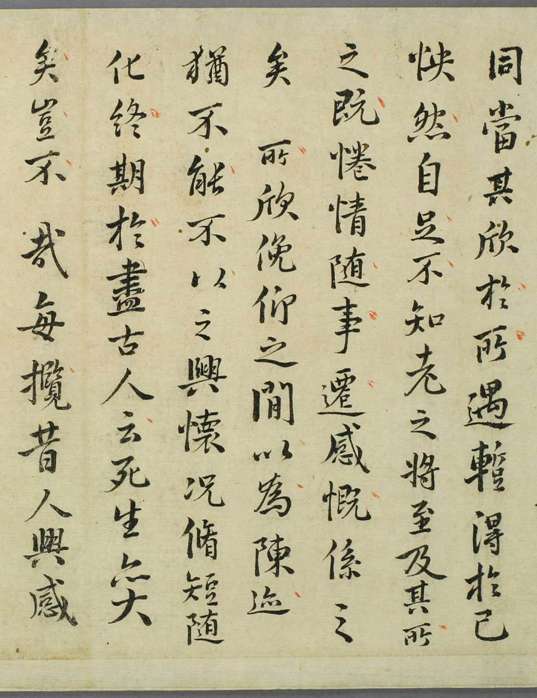 同當其欣於所遇暫得於己
怏然自足不知老之將至及其所
之既惓情随事遷感慨係之
矣 所欣俛仰之間以為陳迹
猶不能不以之興懷况脩短随
化終期於盡古人云死生亦大
矣豈不 哉每攬昔人興感